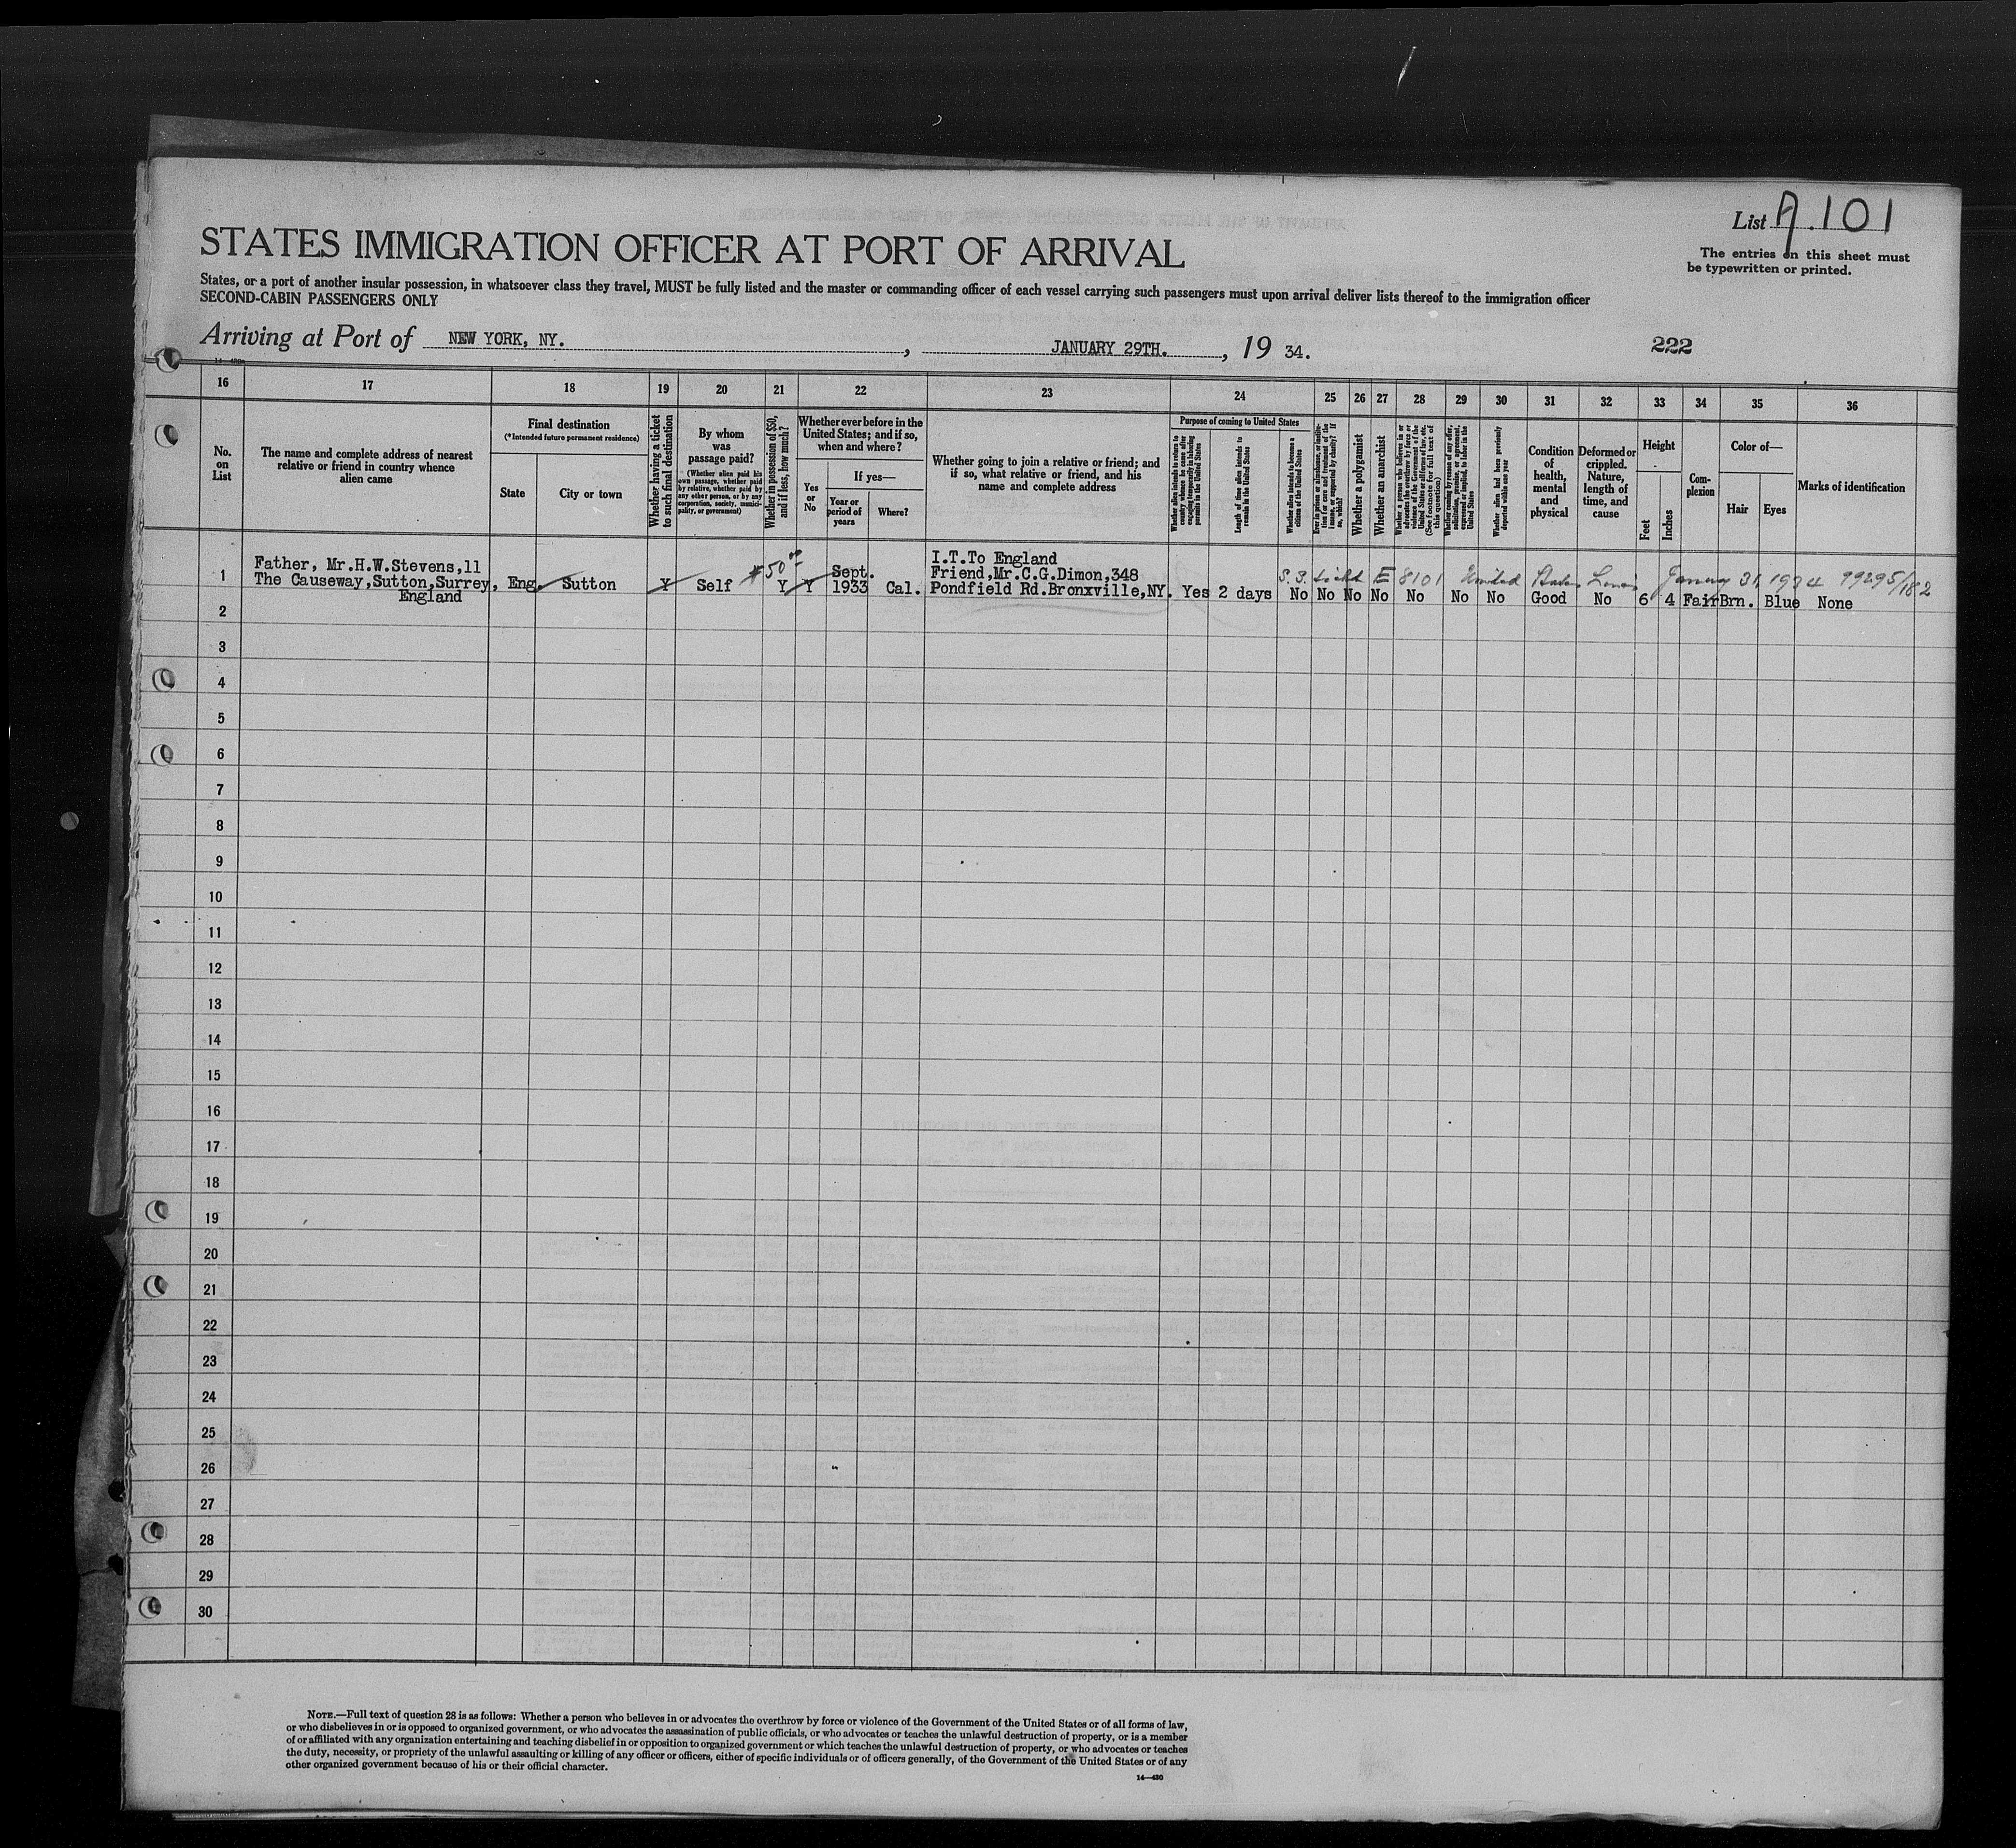 List A.101
The entries on this sheet must
be typewritten or printed.
STATES IMMIGRATION OFFICER AT PORT OF ARRIVAL
States, or a port of another insular possession, in whatsoever class they travel, MUST be fully listed and the master or commanding officer of each vessel carrying such passengers must upon arrival deliver lists thereof to the immigration officer
SECOND-CABIN PASSENGERS ONLY
Arriving at Port of NEW YORK, NY. , JANUARY 29TH. , 19 34.
222
14—430
16 17 18 19 20 21 22 23 24 25 26 27 28 29 30 31 32 33 34 35 36
No.
on
List
The name and complete address of nearest
relative or friend in country whence
alien came
Final destination
(*Intended future permanent residence)
State
City or town
Whether having a ticket
to such final destination
By whom
was
passage paid?
(Whether alien paid his
own passage, whether paid
by relative, whether paid by
any other person, or by any
corporation, society, munici-
pality, or government)
Whether in possession of $50,
and if less, how much?
Whether ever before in the
United States; and if so,
when and where?
Yes
or
No
If yes—
Year or
period of
years
Where?
Whether going to join a relative or friend; and
if so, what relative or friend, and his
name and complete address
Purpose of coming to United States
Whether alien intends to return to
country whence he came after
engaging temporarily in laboring
pursuits in the United States
Length of time alien intends to
remain in the United States
Whether alien intends to become a
citizen of the United States
Ever in prison or almshouse, or institu-
tion for care and treatment of the
insane, or supported by charity? If
so, which?
Whether a polygamist
Whether an anarchist
Whether a person who believes in or
advocates the overthrow by force or
violence of the Government of the
United States or all forms of law, etc.
(See footnote for full text of
this question)
Whether coming by reason of any offer,
solicitation, promise, or agreement,
expressed or implied, to labor in the
United States
Whether alien had been previously
deported within one year
Condition
of
health,
mental
and
physical
Deformed or
crippled.
Nature,
length of
time, and
cause
Height
Feet
Inches
Com-
plexion
Color of—
Hair
Eyes
Marks of identification
1
Father, Mr.H.W.Stevens,11
The Causeway,Sutton,Surrey,
England
Eng.
Sutton
Y
Self
$50.00
Y
Y
Sept.
1933
Cal.
I.T.To England
Friend,Mr.C.G.Dimon,348
Pondfield Rd.Bronxville,NY.
Yes 2 days
E 8101 United States January 31, 1934 99295/182
No No No No No No No Good No 6 4 Fair Brn. Blue None
2
3
4
5
6
7
8
9
10
11
12
13
14
15
16
17
18
19
20
21
22
23
24
25
26
27
28
29
30
NOTE.—Full text of question 28 is as follows: Whether a person who believes in or advocates the overthrow by force or violence of the Government of the United States or of all forms of law,
or who disbelieves in or is opposed to organized government, or who advocates the assassination of public officials, or who advocates or teaches the unlawful destruction of property, or is a member
of or affiliated with any organization entertaining and teaching disbelief in or opposition to organized government or which teaches the unlawful destruction of property, or who advocates or teaches
the duty, necessity, or propriety of the unlawful assaulting or killing of any officer or officers, either of specific individuals or of officers generally, of the Government of the United States or of any
other organized government because of his or their official character.
14—430